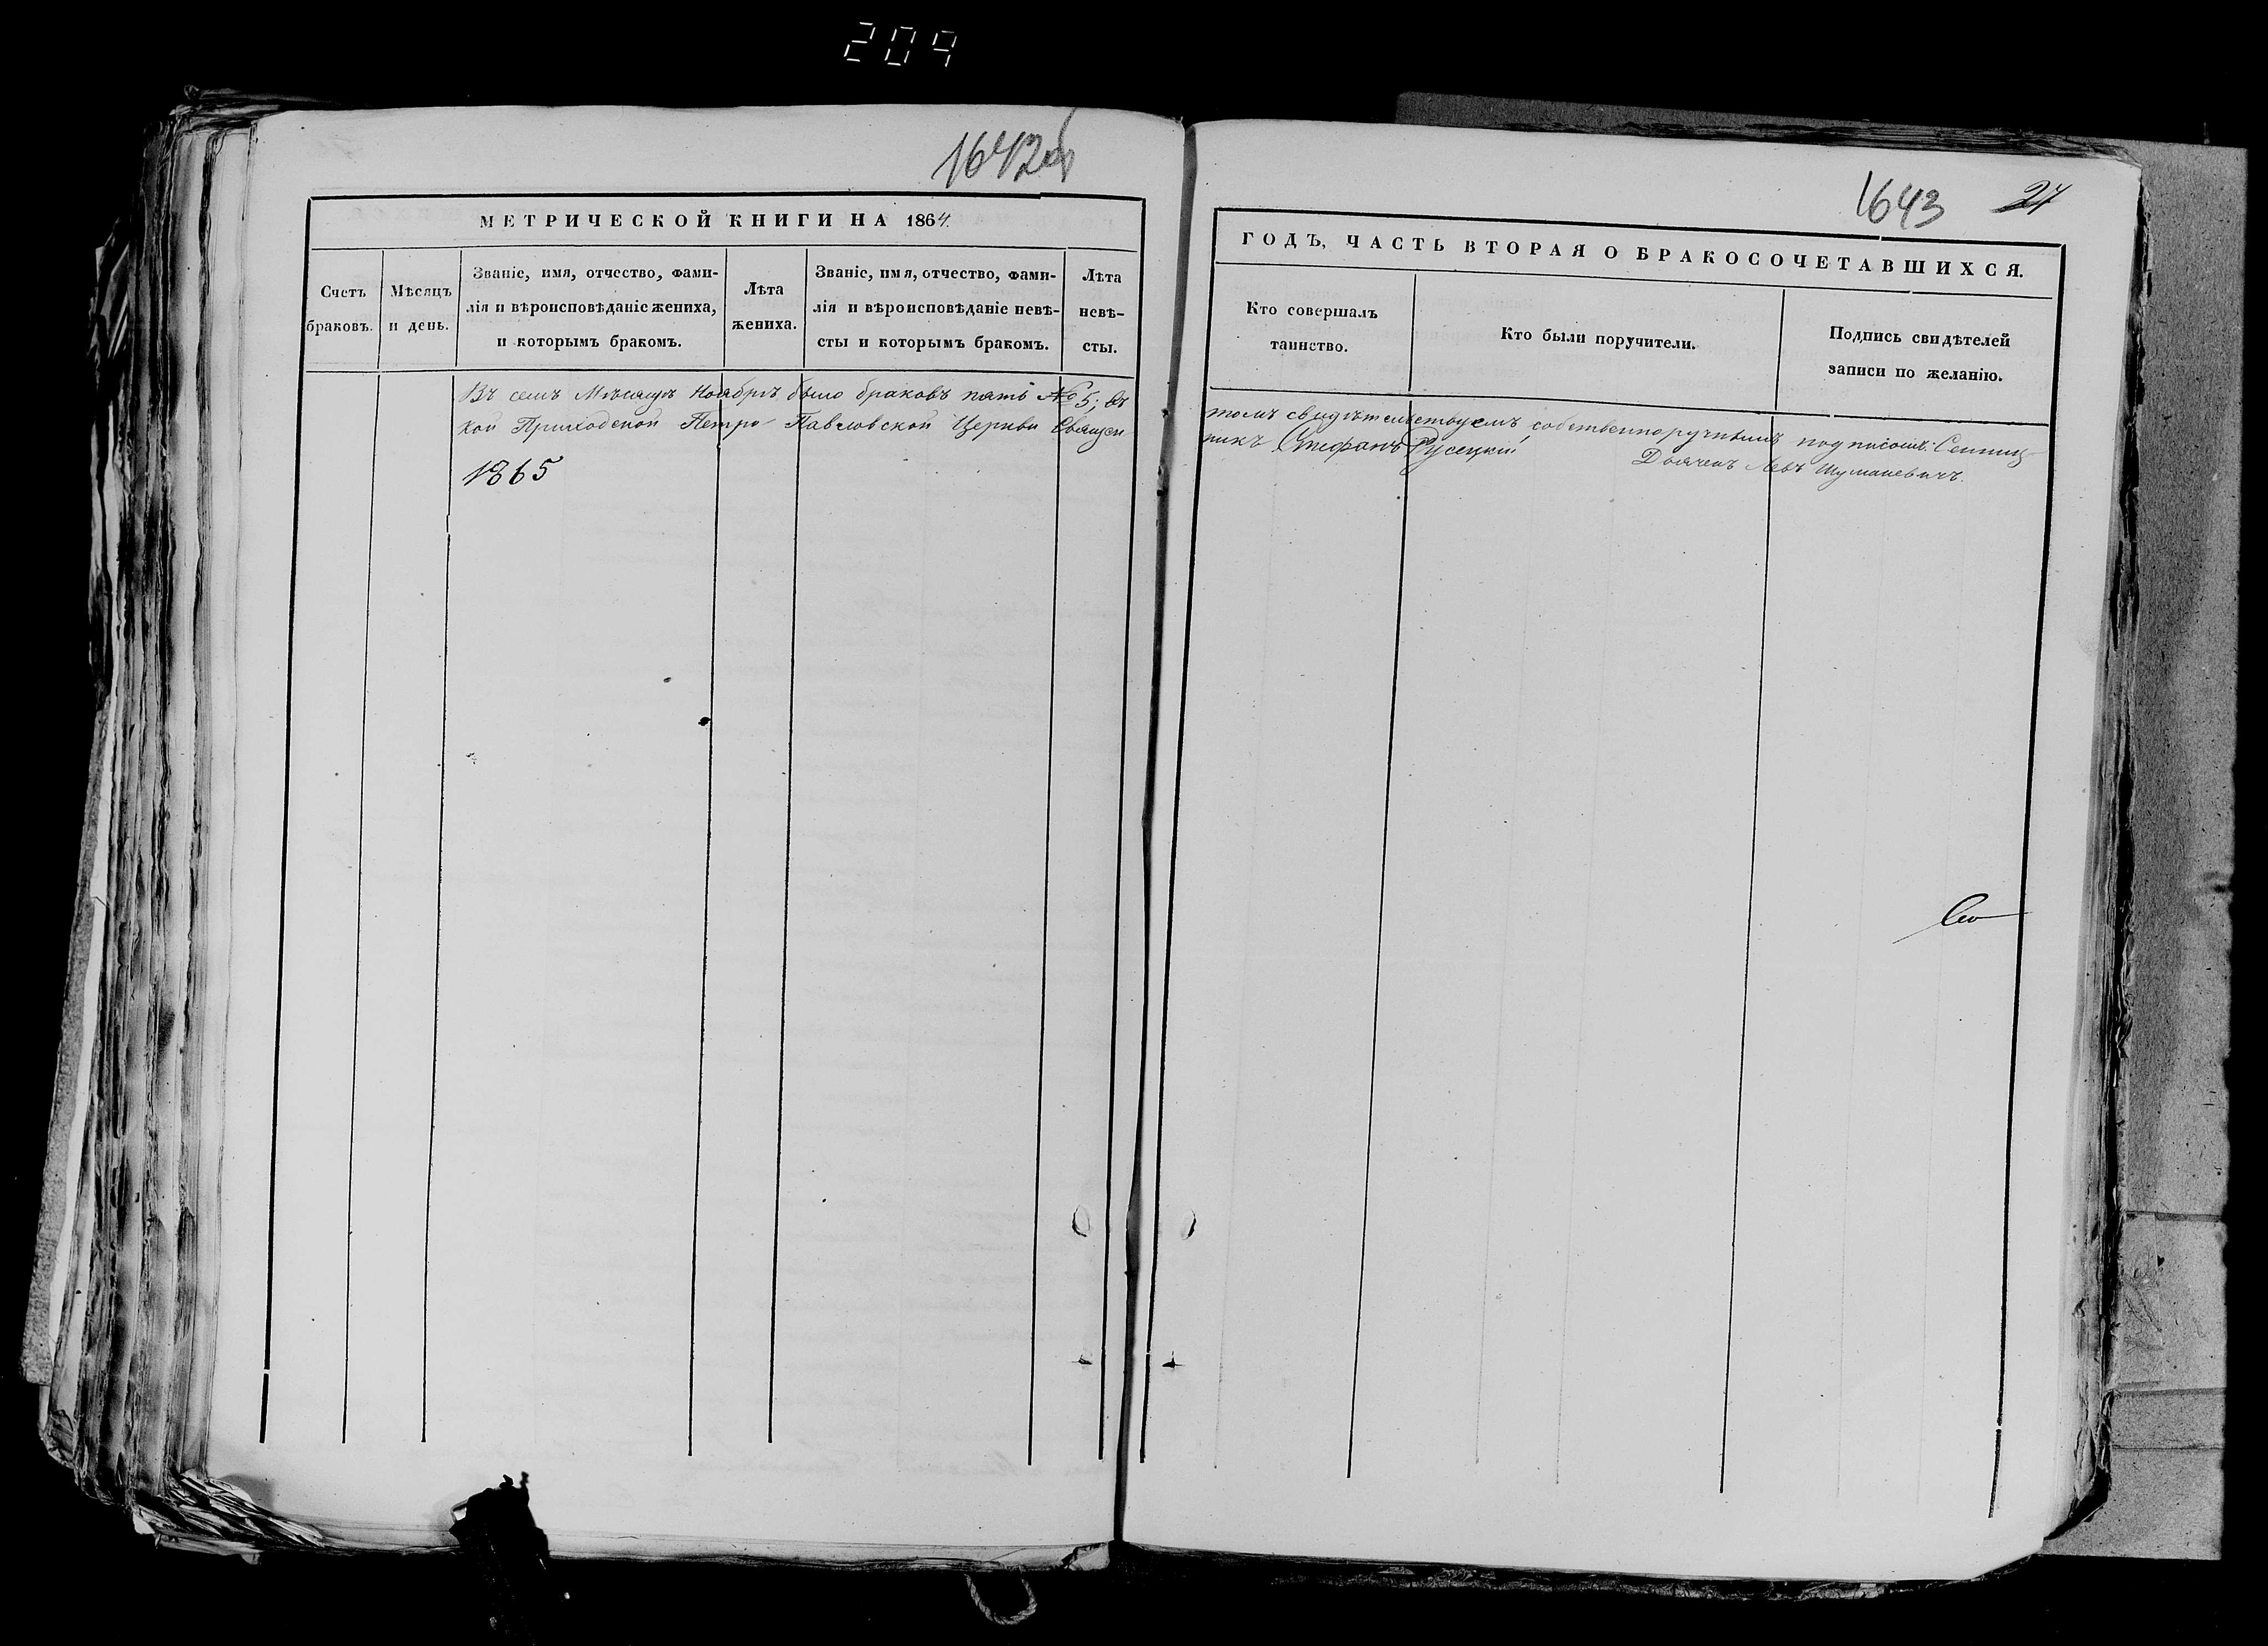 209
1642об
МЕТРИЧЕСКОЙ КНИГИ НА 1864.
Счетъ браковъ.
Мѣсяцъ и день.
Званіе, имя, отчество, фами-
лія и вѣроисповѣданіе жениха,
и которымъ бракомъ.
Лѣта жениха.
Званіе, имя, отчество, фами-
лія и вѣроисповѣданіе невѣ-
сты и которымъ бракомъ.
Лѣта невѣ-
сты.
Въ семъ Мѣсяцѣ Ноябрѣ было браковъ пять № 5; въ
кой Приходской Петро-Павловской Церкви Священ-
1865
1643 27
ГОДЪ, ЧАСТЬ ВТОРАЯ О БРАКОСОЧЕТАВШИХСЯ.
Кто совершалъ
таинство.
Кто были поручители.
Подпись свидѣтелей
записи по желанію.
томъ свидѣтельствуемъ собственноручнымъ подписомъ: Сенниц-
никъ Стефанъ Русецкій
Дьячекъ Левъ Шуманевичъ.